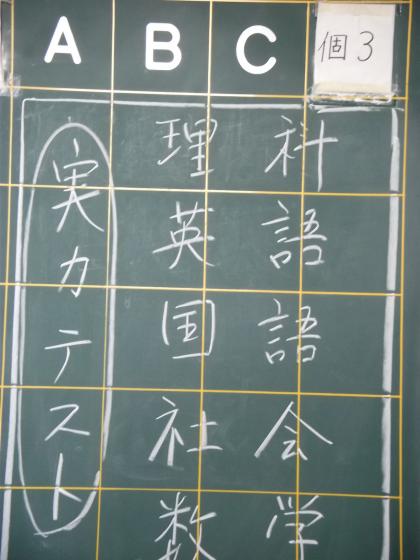 A B C 個3
実力テスト
理科
英語
国語
社会
数学